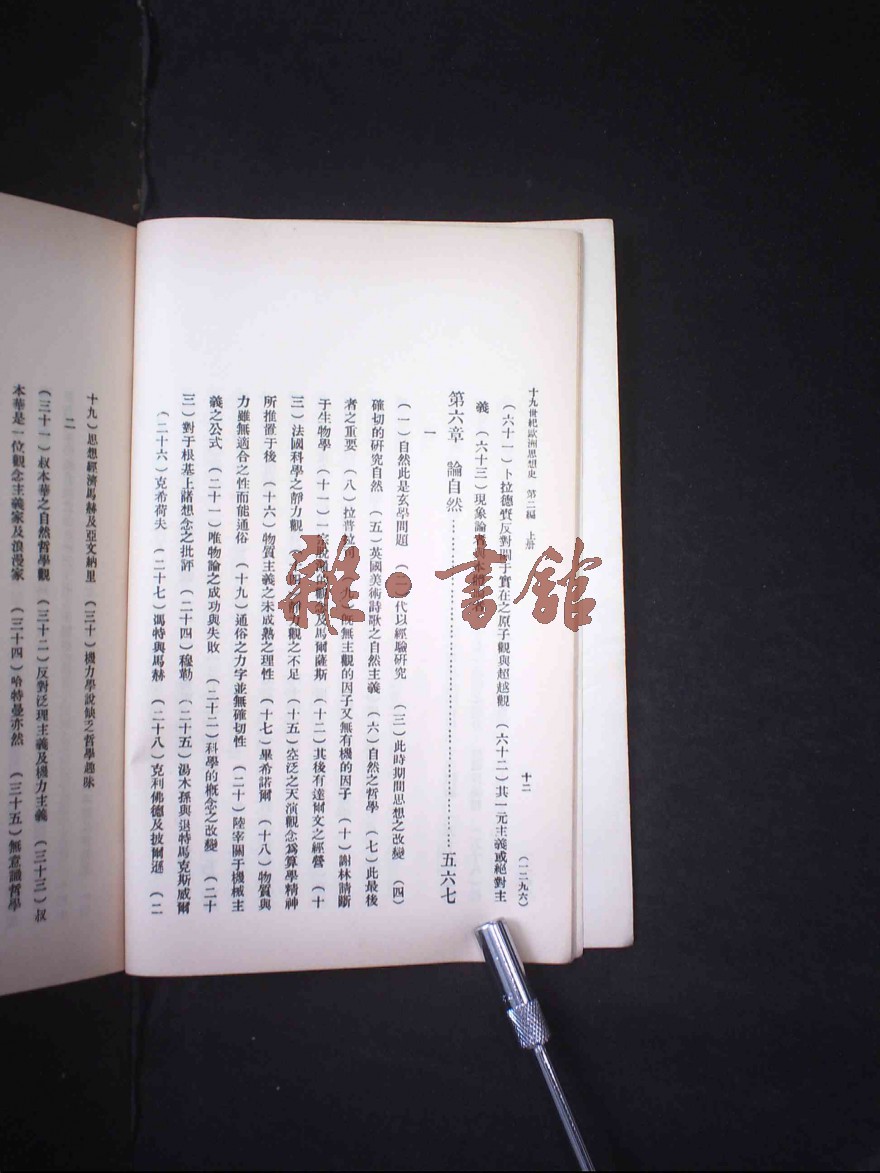 十九世紀歐洲思想史 第二編 上册 十二 (一二九六)
(六十一)卜拉德賚反對關于實在之原子觀與超越觀 (六十二)其一元主義或絕對主
義 (六十三)現象論
第六章 論自然 五六七
一
(一)自然此是玄學問題 (二)代以經驗研究 (三)此時期間思想之改變 (四)
確切的研究自然 (五)英國美術詩歌之自然主義 (六)自然之哲學 (七)此最後
者之重要 (八)拉普拉 既無主觀的因子又無有機的因子 (十)謝林請斷
于生物學 (十一)一 馬爾薩斯 (十二)其後有達爾文之經營 (十
三)法國科學之靜力觀 靜力觀之不足 (十五)空泛之天演觀念爲算學精神
所推置于後 (十六)物質主義之未成熟之理性 (十七)畢希諾爾 (十八)物質與
力雖無適合之性而能通俗 (十九)通俗之力字並無確切性 (二十)陸宰關于機械主
義之公式 (二十一)唯物論之成功與失敗 (二十二)科學的概念之改變 (二十
三)對于根基上諸想念之批評 (二十四)穆勒 (二十五)湯木孫與退特馬克斯威爾
(二十六)克希荷夫 (二十七)馮特與馬赫 (二十八)克利佛德及披爾遜 (二
十九)思想經濟馬赫及亞文納里 (三十)機力學說缺乏哲學趣味
二
(三十一)叔本華之自然哲學觀 (三十二)反對泛理主義及機力主義 (三十三)叔
本華是一位觀念主義家及浪漫家 (三十四)哈特曼亦然 (三十五)無意識哲學
雜·書館